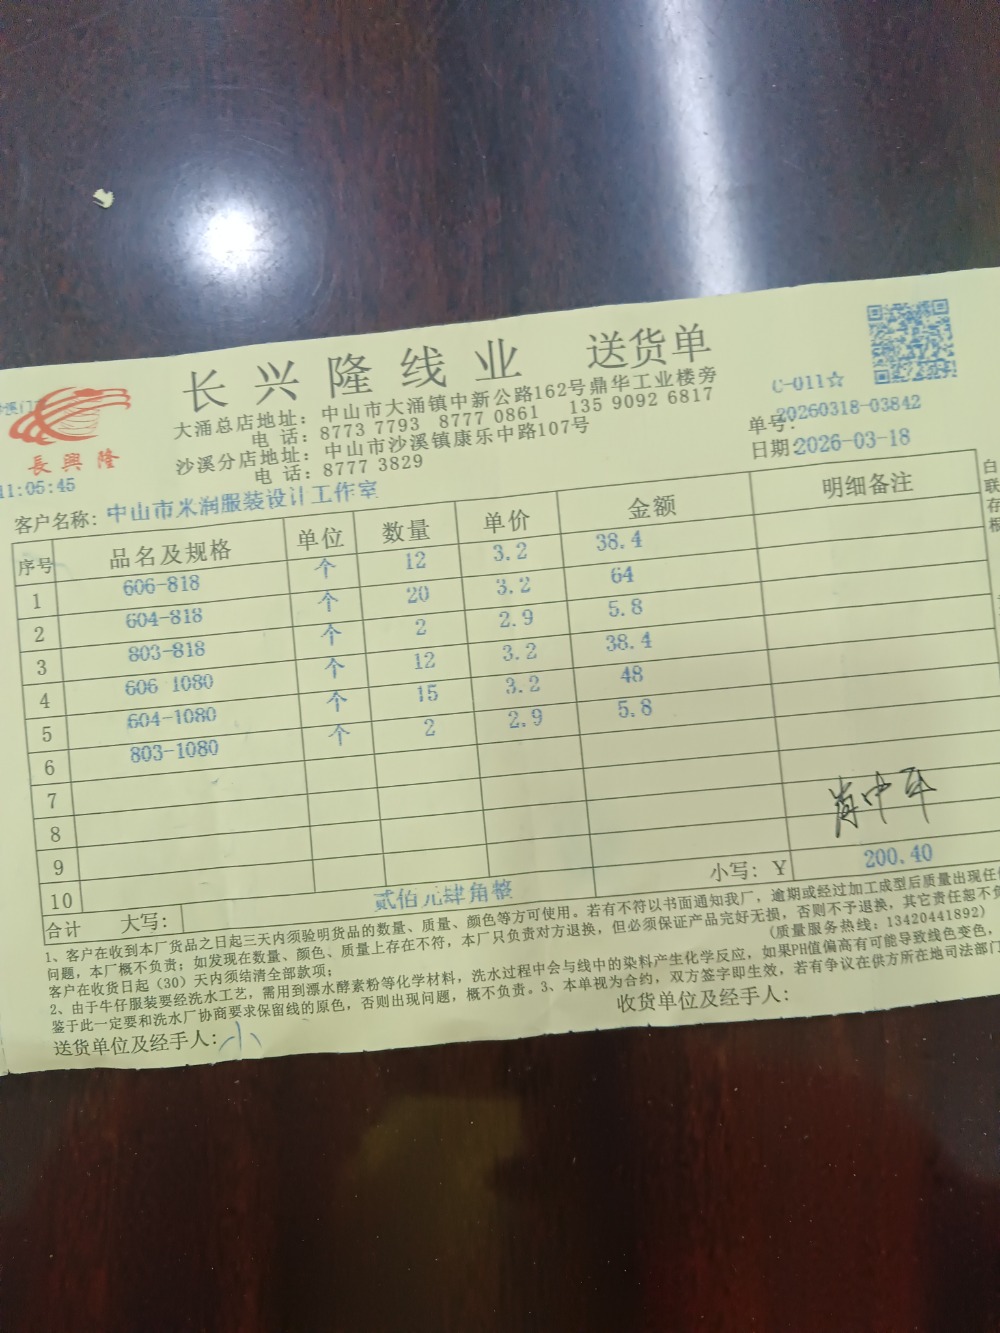 长兴隆线业 送货单
大涌总店地址：中山市大涌镇中新公路162号鼎华工业楼旁
电 话：8773 7793 8777 0861 135 9092 6817
沙溪分店地址：中山市沙溪镇康乐中路107号
电 话：8777 3829
C-011☆
单号：20260318-03842
日期：2026-03-18
長興隆
11:05:45
客户名称：中山市米润服装设计工作室
序号 品名及规格 单位 数量 单价 金额 明细备注
1 606-818 个 12 3.2 38.4
2 604-818 个 20 3.2 64
3 803-818 个 2 2.9 5.8
4 606 1080 个 12 3.2 38.4
5 604-1080 个 15 3.2 48
6 803-1080 个 2 2.9 5.8
7
8
9
10
合计 大写： 贰佰元肆角整 小写：Y 200.40
1、客户在收到本厂货品之日起三天内须验明货品的数量、质量、颜色等方可使用。若有不符以书面通知我厂，逾期或经过加工成型后质量出现任何
问题，本厂概不负责；如发现在数量、颜色、质量上存在不符，本厂只负责对方退换，但必须保证产品完好无损，否则不予退换，其它责任恕不负
客户在收货日起（30）天内须结清全部款项；
（质量服务热线：13420441892）
2、由于牛仔服装要经洗水工艺，需用到漂水酵素粉等化学材料，洗水过程中会与线中的染料产生化学反应，如果PH值偏高有可能导致线色变色，
鉴于此一定要和洗水厂协商要求保留线的原色，否则出现问题，概不负责。3、本单视为合约，双方签字即生效，若有争议在供方所在地司法部门
送货单位及经手人：小
收货单位及经手人：
白联存根